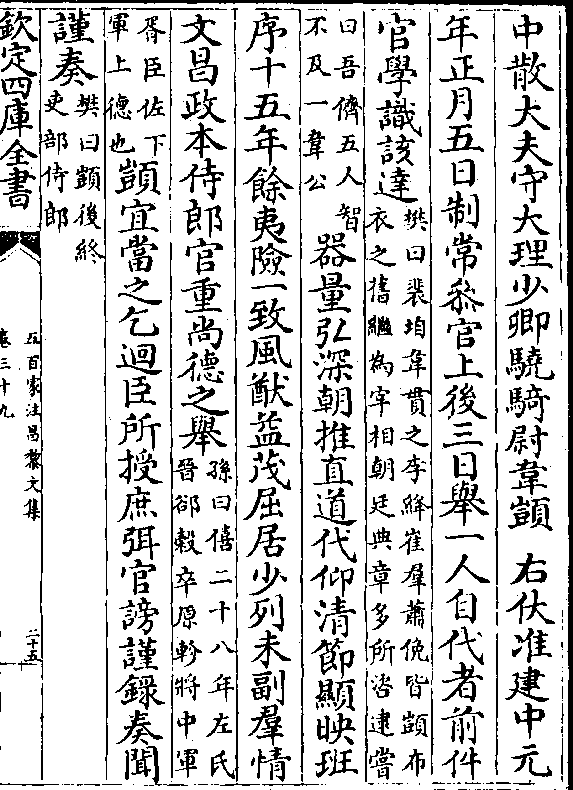 中散大夫守大理少卿驍騎尉韋顗　右伏准建中元
年正月五日制常叅官上後三日舉一人自代者前件
官學識該達樊曰裴垍韋貫之李絳崔羣蕭俛皆顗布
衣之舊繼為宰相朝廷典章多所咨逮嘗
曰吾儕五人智
不及一韋公器量弘深朝推直道代仰清節顯映班
序十五年餘夷險一致風猷益茂屈居少列未副羣情
文昌政本侍郎官重尚德之舉孫曰僖二十八年左氏
晉郤縠卒原軫將中軍
胥臣佐下
軍上德也顗宜當之乞迴臣所授庶弭官謗謹錄奏聞
謹奏樊曰顗後終
吏部侍郎
欽定四庫全書
五百家注昌黎文集
卷三十九
二十五